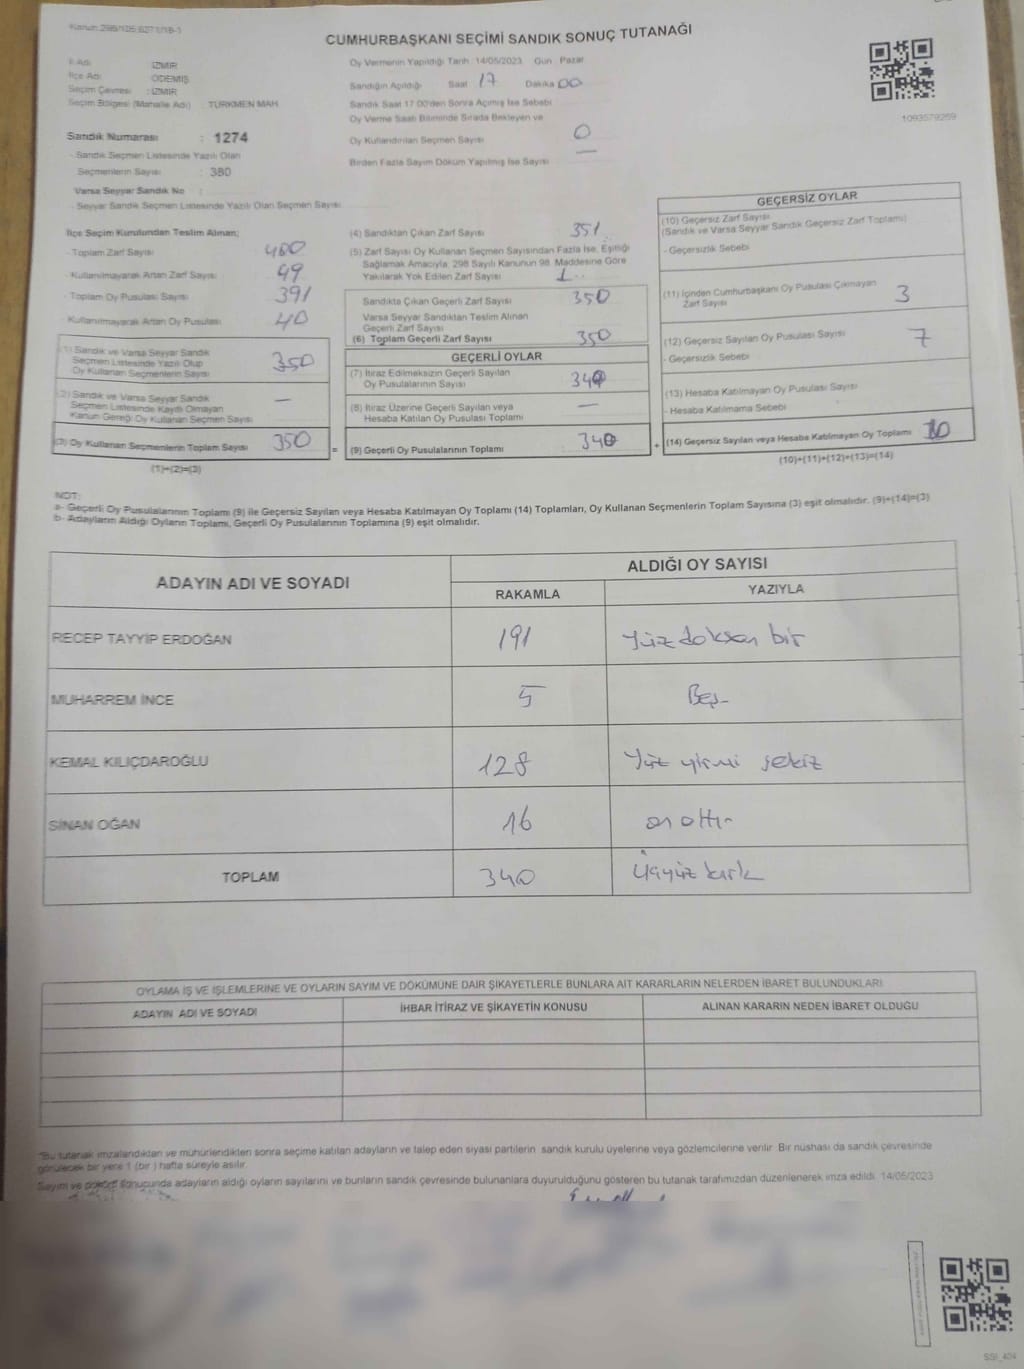 CUMHURBAŞKANI SEÇİMİ SANDIK SONUÇ TUTANAĞI
1093579269
İl Adı : İZMİR
İlçe Adı : ÖDEMİŞ
Seçim Çevresi : İZMİR
Seçim Bölgesi (Mahalle Adı) : TÜRKMEN MAH.
Sandık Numarası : 1274
- Sandık Seçmen Listesinde Yazılı Olan
Seçmenlerin Sayısı : 380
Varsa Seyyar Sandık No :
- Seyyar Sandık Seçmen Listesinde Yazılı Olan Seçmen Sayısı :
Oy Vermenin Yapıldığı Tarih 14/05/2023 Gün Pazar
Sandığın Açıldığı Saat 17 Dakika 00
Sandık Saat 17.00'den Sonra Açımış İse Sebebi
Oy Verme Saati Bitiminde Sırada Bekleyen ve
Oy Kullandırılan Seçmen Sayısı 0
Birden Fazla Sayım Döküm Yapılmış İse Sayısı —
İlçe Seçim Kurulundan Teslim Alınan;
- Toplam Zarf Sayısı 400
- Kullanılmayarak Artan Zarf Sayısı 49
- Toplam Oy Pusulası Sayısı 391
- Kullanılmayarak Artan Oy Pusulası 40
(1) Sandık ve Varsa Seyyar Sandık
Seçmen Listesinde Yazılı Olup
Oy Kullanan Seçmenlerin Sayısı 350
(2) Sandık ve Varsa Seyyar Sandık
Seçmen Listesinde Kayıtlı Olmayan
Kanun Gereği Oy Kullanan Seçmen Sayısı —
(3) Oy Kullanan Seçmenlerin Toplam Sayısı 350
=
(1)+(2)=(3)
(4) Sandıktan Çıkan Zarf Sayısı 351
(5) Zarf Sayısı Oy Kullanan Seçmen Sayısından Fazla İse, Eşitliği
Sağlamak Amacıyla, 298 Sayılı Kanunun 98. Maddesine Göre
Yakılarak Yok Edilen Zarf Sayısı 1
Sandıkta Çıkan Geçerli Zarf Sayısı 350
Varsa Seyyar Sandıktan Teslim Alınan
Geçerli Zarf Sayısı
(6) Toplam Geçerli Zarf Sayısı 350
GEÇERLİ OYLAR
(7) İtiraz Edilmeksizin Geçerli Sayılan
Oy Pusulalarının Sayısı 340
(8) İtiraz Üzerine Geçerli Sayılan veya
Hesaba Katılan Oy Pusulası Toplamı —
(9) Geçerli Oy Pusulalarının Toplamı 340
+
GEÇERSİZ OYLAR
(10) Geçersiz Zarf Sayısı
(Sandık ve Varsa Seyyar Sandık Geçersiz Zarf Toplamı)
- Geçersizlik Sebebi
(11) İçinden Cumhurbaşkanı Oy Pusulası Çıkmayan
Zarf Sayısı 3
(12) Geçersiz Sayılan Oy Pusulası Sayısı 7
- Geçersizlik Sebebi
(13) Hesaba Katılmayan Oy Pusulası Sayısı
- Hesaba Katılmama Sebebi
(14) Geçersiz Sayılan veya Hesaba Katılmayan Oy Toplamı 10
(10)+(11)+(12)+(13)=(14)
NOT:
a- Geçerli Oy Pusulalarının Toplamı (9) ile Geçersiz Sayılan veya Hesaba Katılmayan Oy Toplamı (14) Toplamları, Oy Kullanan Seçmenlerin Toplam Sayısına (3) eşit olmalıdır. (9)+(14)=(3)
b- Adayların Aldığı Oyların Toplamı, Geçerli Oy Pusulalarının Toplamına (9) eşit olmalıdır.
ADAYIN ADI VE SOYADI
ALDIĞI OY SAYISI
RAKAMLA YAZIYLA
RECEP TAYYİP ERDOĞAN 191 Yüz doksan bir
MUHARREM İNCE 5 Beş
KEMAL KILIÇDAROĞLU 128 Yüz yirmi sekiz
SİNAN OĞAN 16 on altı
TOPLAM 340 Üçyüz kırk
OYLAMA İŞ VE İŞLEMLERİNE VE OYLARIN SAYIM VE DÖKÜMÜNE DAİR ŞİKAYETLERLE BUNLARA AİT KARARLARIN NELERDEN İBARET BULUNDUKLARI
ADAYIN ADI VE SOYADI
İHBAR İTİRAZ VE ŞİKAYETİN KONUSU
ALINAN KARARIN NEDEN İBARET OLDUĞU
*Bu tutanak imzalandıktan ve mühürlendikten sonra seçime katılan adayların ve talep eden siyasi partilerin sandık kurulu üyelerine veya gözlemcilerine verilir. Bir nüshası da sandık çevresinde
görülecek bir yere 1 (bir ) hafta süreyle asılır.
Sayım ve döküm sonucunda adayların aldığı oyların sayılarını ve bunların sandık çevresinde bulunanlara duyurulduğunu gösteren bu tutanak tarafımızdan düzenlenerek imza edildi. 14/05/2023